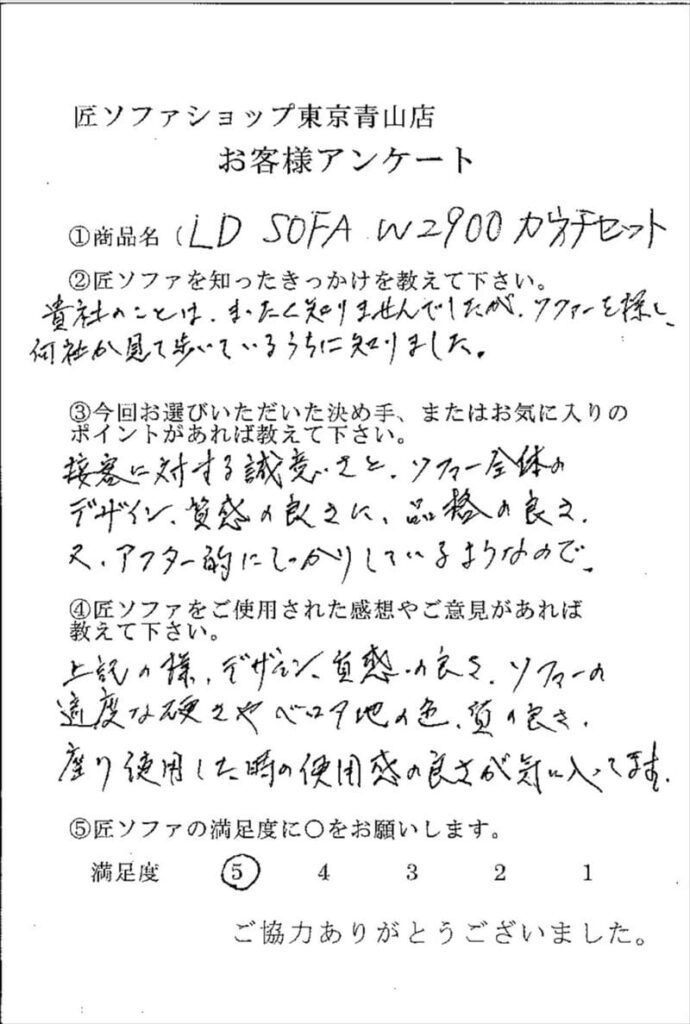 匠ソファショップ東京青山店
お客様アンケート
①商品名（LD SOFA W2900 カウチセット
②匠ソファを知ったきっかけを教えて下さい。
貴社のことは、まったく知りませんでしたが、ソファーを探し、
何社か見て歩いているうちに知りました。
③今回お選びいただいた決め手、またはお気に入りの
ポイントがあれば教えて下さい。
接客に対する誠意さと、ソファー全体の
デザイン、質感の良さに、品格の良さ、
又、アフター的にしっかりしているようなので、
④匠ソファをご使用された感想やご意見があれば
教えて下さい。
上記の様、デザイン、質感の良さ、ソファーの
適度な硬さやベロア地の色、質の良さ、
座り使用した時の使用感の良さが気に入ってます。
⑤匠ソファの満足度に〇をお願いします。
満足度 5 4 3 2 1
ご協力ありがとうございました。